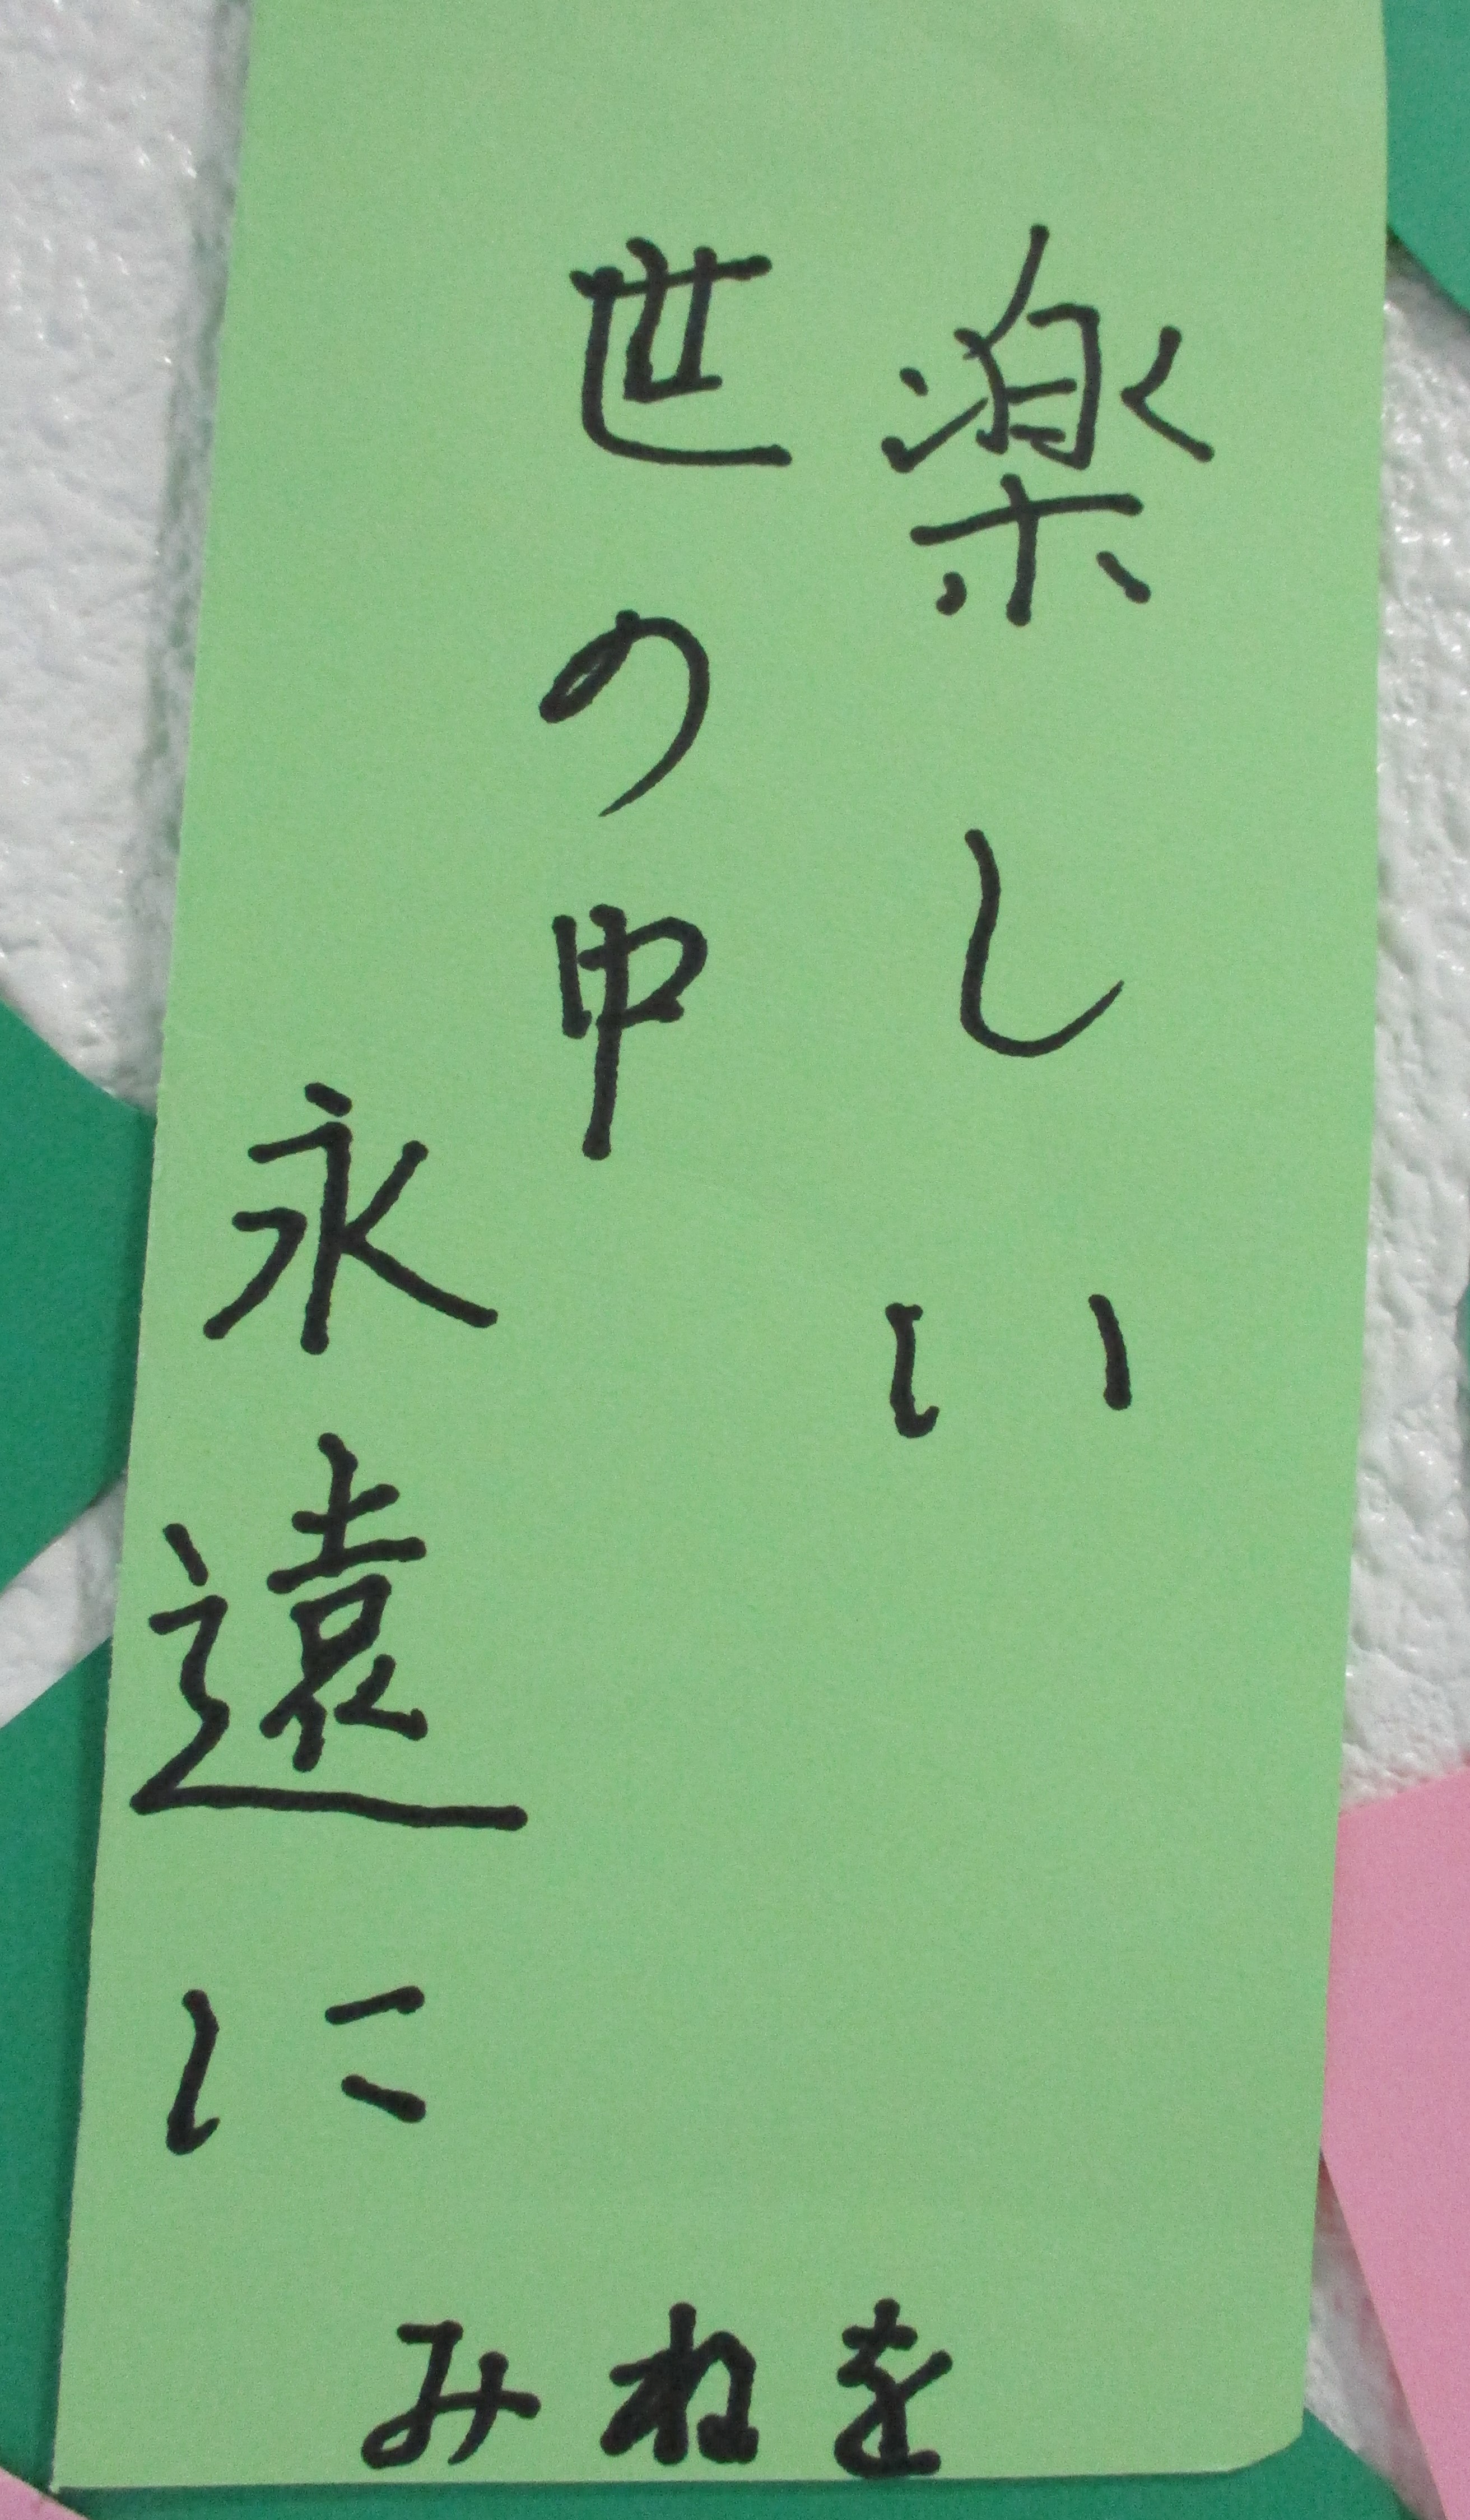 楽しい
世の中
永遠に
みねを